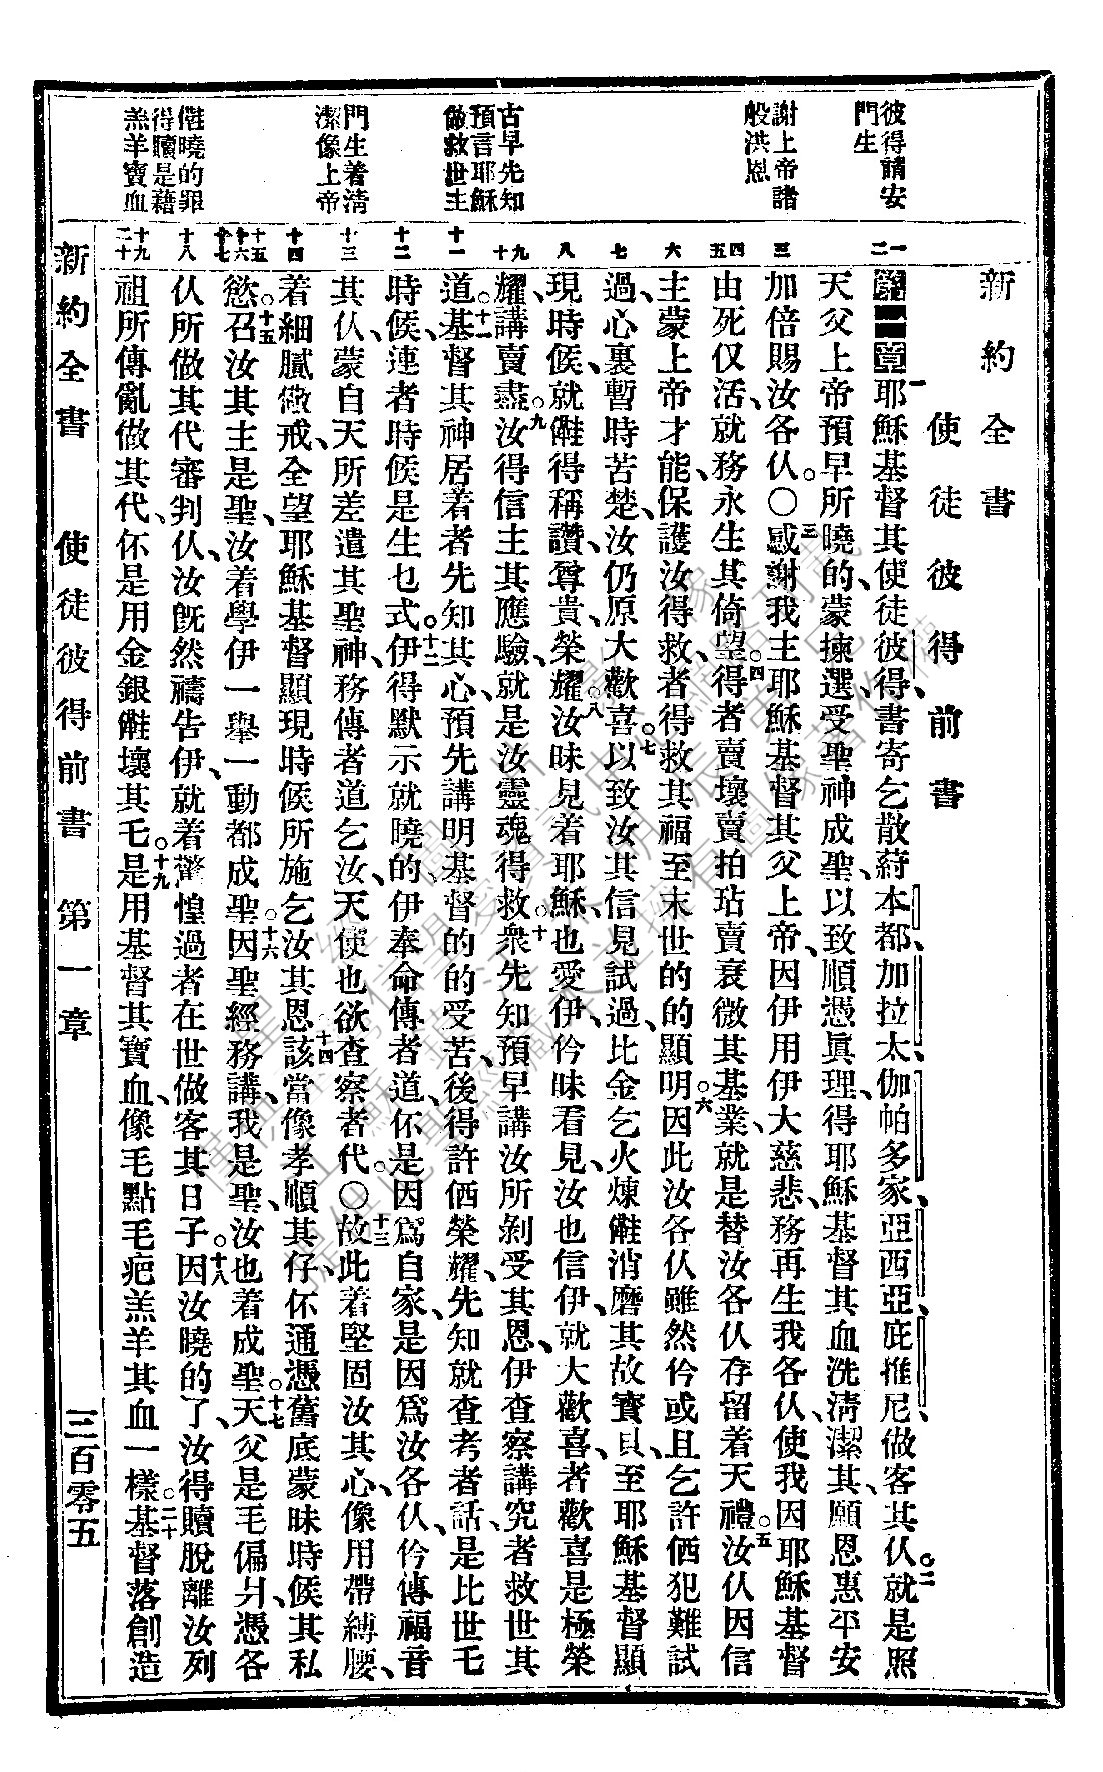 彼得請安
門生
謝上帝諸
般洪恩
古早先知
預言耶穌
做救世主
門生着清
潔像上帝
僫曉的罪
得贖是藉
羔羊寶血
新約全書
使徒彼得前書
第一章 一耶穌基督其使徒彼得、書寄乞散蒔本都、加拉太、伽帕多家、亞西亞、庇推尼、做客其仈。二就是照
天父上帝預早所曉的、蒙揀選、受聖神成聖、以致順憑眞理、得耶穌基督其血洗清潔其、願恩惠平安
加倍賜汝各仈。〇三感謝我主耶穌基督其父上帝、因伊用伊大慈悲、務再生我各仈、使我因耶穌基督
由死仅活、就務永生其倚望。四得者賣壞賣拍玷賣衰微其基業、就是替汝各仈存留着天禮。五汝仈因信
主蒙上帝才能、保護汝得救、者得救其福至末世的的顯明。六因此汝各仈雖然仱或且乞許㑚犯難試
過、心裏暫時苦楚、汝仍原大歡喜。七以致汝其信見試過、比金乞火煉㑚消磨其故寶貝、至耶穌基督顯
現時候、就㑚得稱讚、尊貴、榮耀。八汝昧見着耶穌、也愛伊、仱昧看見、汝也信伊、就大歡喜、者歡喜是極榮
耀、講賣盡。九汝得信主其應驗、就是汝靈魂得救。十衆先知預早講汝所剝受其恩、伊查察講究者救世其
道。十一基督其神居着者先知其心、預先講明基督的的受苦、後得許㑚榮耀、先知就查考者話、是比世乇
時候、連者時候是生乜式。十二伊得默示就曉的伊奉命傳者道、伓是因爲自家、是因爲汝各仈、仱傳福音
其仈、蒙自天所差遣其聖神、務傳者道乞汝、天使也欲查察者代。〇十三故此着堅固汝其心、像用帶縛腰、
着細膩儆戒、全望耶穌基督顯現時候所施乞汝其恩。十四該當像孝順其仔、伓通憑舊底蒙昧時候其私
慾。十五召汝其主是聖、汝着學伊一舉一動都成聖。十六因聖經務講、我是聖、汝也着成聖。十七天父是毛偏爿、憑各
仈所做其代審判仈、汝旣然禱告伊、就着驚惶過者在世做客其日子。十八因汝曉的了、汝得贖脫離汝列
祖所傳亂做其代、伓是用金銀㑚壞其乇。十九是用基督其寶血、像毛點毛疤羔羊其血一樣。二十基督落創造
新約全書 使徒彼得前書 第一章 三百零五